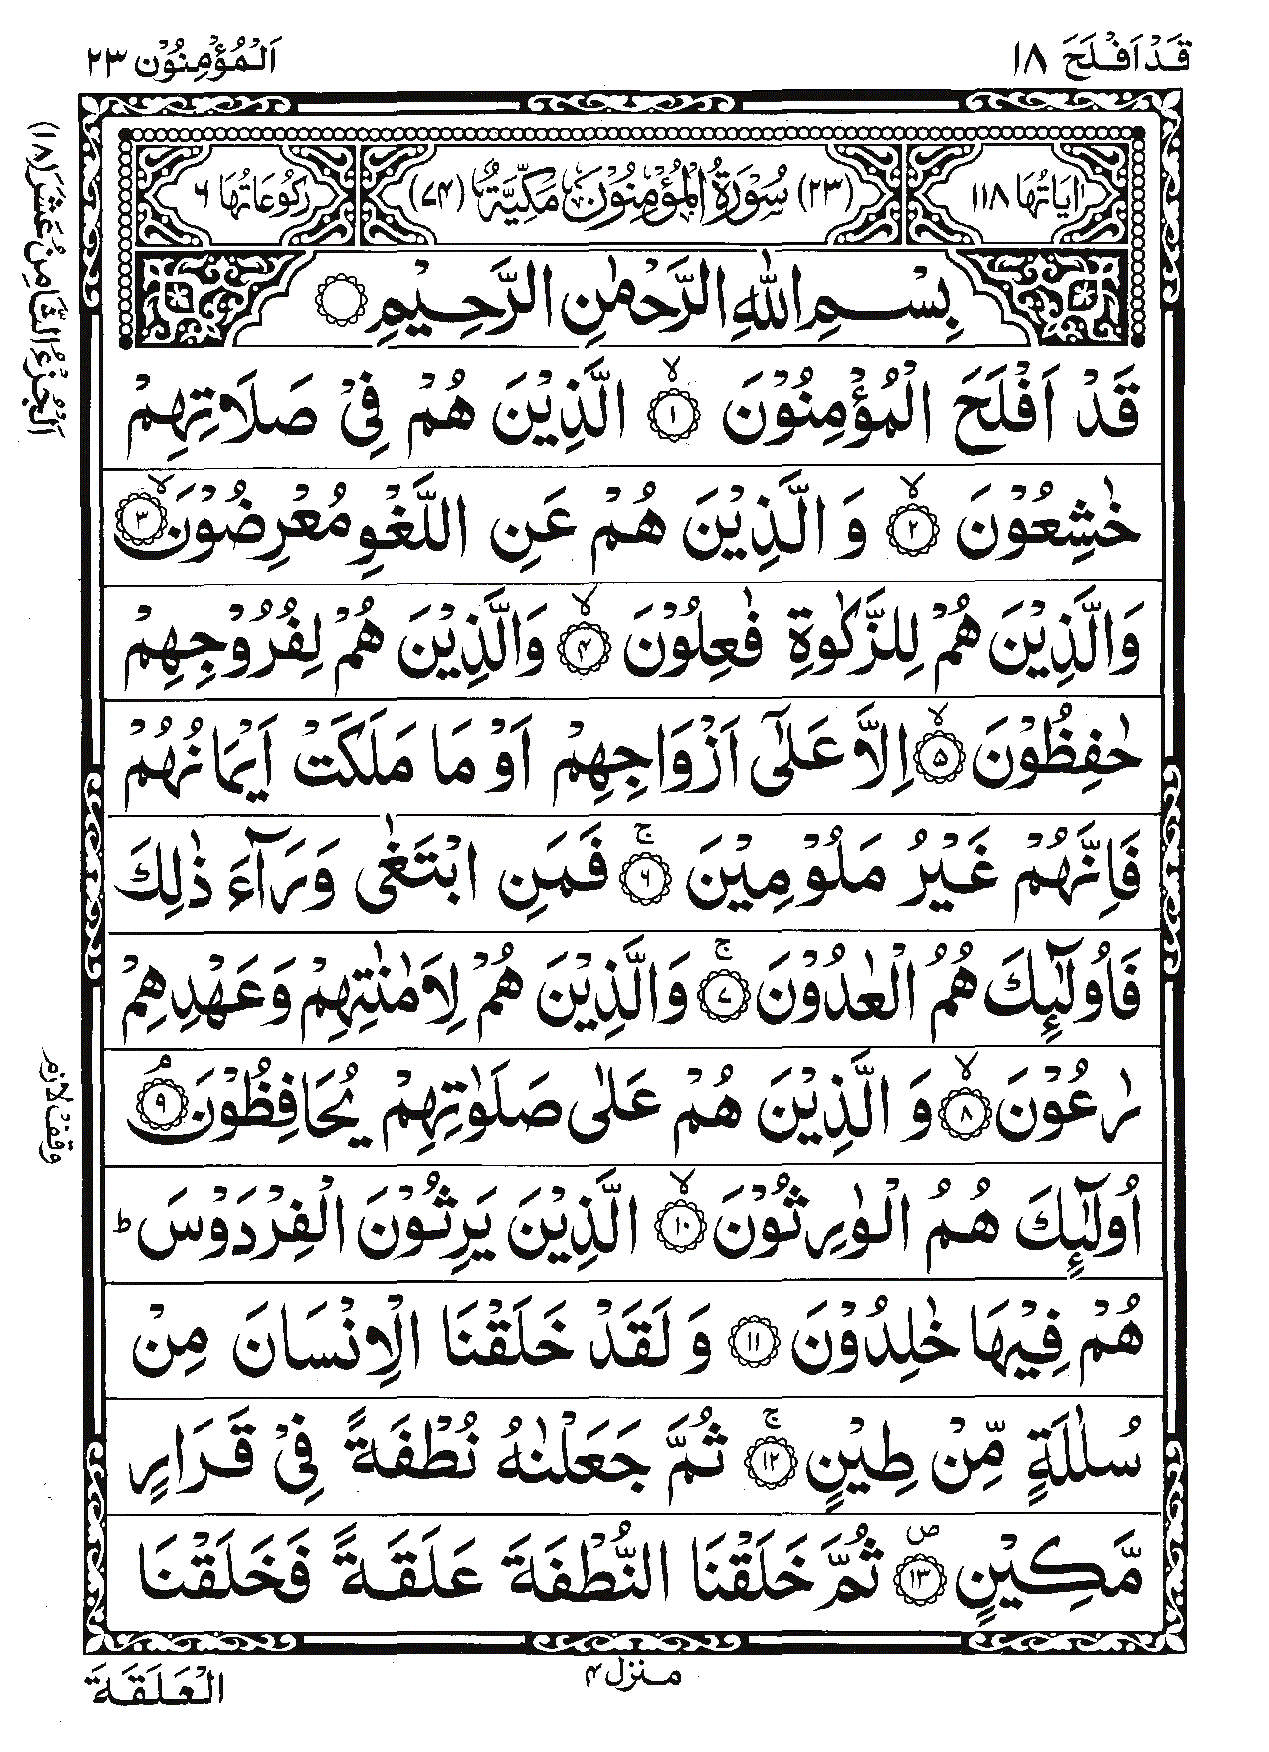 قَدْ اَفْلَحَ ١٨
اَلْمُؤْمِنُوْن ٢٣
اَلْجُزْءُ الثَّامِنُ عَشَرَ (١٨)
اٰیَاتُهَا ١١٨
(٢٣) سُوْرَةُ الْمُؤْمِنُوْنَ مَكِّيَّةٌ (٧٤)
رُكُوْعَاتُهَا ٦
بِسْمِ اللّٰهِ الرَّحْمٰنِ الرَّحِيْمِ
قَدْ اَفْلَحَ الْمُؤْمِنُوْنَ ۙ‏ ١ الَّذِيْنَ هُمْ فِىْ صَلَاتِهِمْ
خٰشِعُوْنَ ۙ‏ ٢ وَ الَّذِيْنَ هُمْ عَنِ اللَّغْوِ مُعْرِضُوْنَ ۙ‏ ٣
وَالَّذِيْنَ هُمْ لِلزَّكٰوةِ فٰعِلُوْنَ ۙ‏ ٤ وَالَّذِيْنَ هُمْ لِفُرُوْجِهِمْ
حٰفِظُوْنَ ۙ‏ ٥ اِلَّا عَلٰٓى اَزْوَاجِهِمْ اَوْ مَا مَلَكَتْ اَيْمَانُهُمْ
فَاِنَّهُمْ غَيْرُ مَلُوْمِيْنَ ۚ‏ ٦ فَمَنِ ابْتَغٰى وَرَآءَ ذٰلِكَ
فَاُولٰٓئِكَ هُمُ الْعٰدُوْنَ ۚ‏ ٧ وَالَّذِيْنَ هُمْ لِاَمٰنٰتِهِمْ وَعَهْدِهِمْ
رٰعُوْنَ ۙ‏ ٨ وَ الَّذِيْنَ هُمْ عَلٰى صَلَوٰتِهِمْ يُحَافِظُوْنَ ۘ‏ ٩
وقف لازم
اُولٰٓئِكَ هُمُ الْوٰرِثُوْنَ ۙ‏ ١٠ الَّذِيْنَ يَرِثُوْنَ الْفِرْدَوْسَ ؕ
هُمْ فِيْهَا خٰلِدُوْنَ ١١ وَ لَقَدْ خَلَقْنَا الْاِنْسَانَ مِنْ
سُلٰلَةٍ مِّنْ طِيْنٍ ۚ‏ ١٢ ثُمَّ جَعَلْنٰهُ نُطْفَةً فِىْ قَرَارٍ
مَّكِيْنٍ ۖ‏ ١٣ ثُمَّ خَلَقْنَا النُّطْفَةَ عَلَقَةً فَخَلَقْنَا
منزل ٤
الْعَلَقَةَ